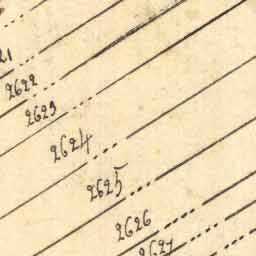 21
2622
2623
2624
2625
2626
2627